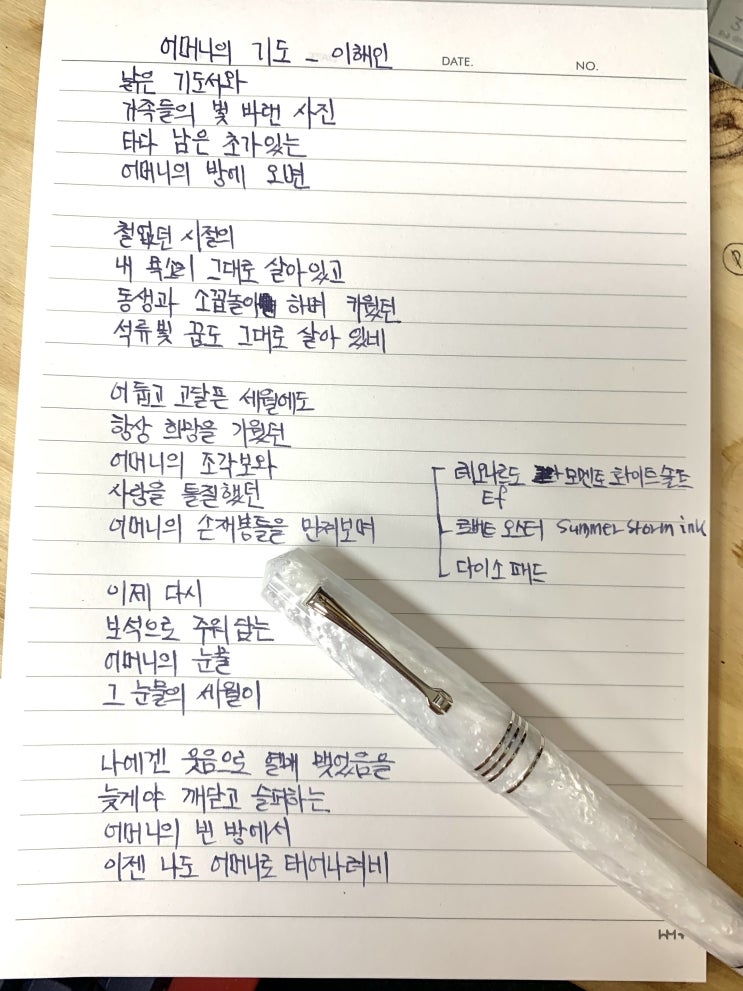 어머니의 기도 - 이해인
DATE.
NO.
낡은 기도서와
가족들의 빛 바랜 사진
타다 남은 초가 있는
어머니의 방에 오면
철없던 시절의
내 목소리 그대로 살아 있고
동생과 소꿉놀이 하며 키웠던
석류빛 꿈도 그대로 살아 있네
어둡고 고달픈 세월에도
항상 희망을 기웠던
어머니의 조각보와
사랑을 틀질했던
어머니의 손재봉틀을 만져보며
이제 다시
보석으로 주워 담는
어머니의 눈물
그 눈물의 세월이
나에겐 웃음으로 열매 맺었음을
늦게야 깨닫고 슬퍼하는
어머니의 빈 방에서
이젠 나도 어머니로 태어나려네
레오나르도 모멘토 화이트솔트
Ef
로버트 오스터 Summer Storm ink
다이소 패드